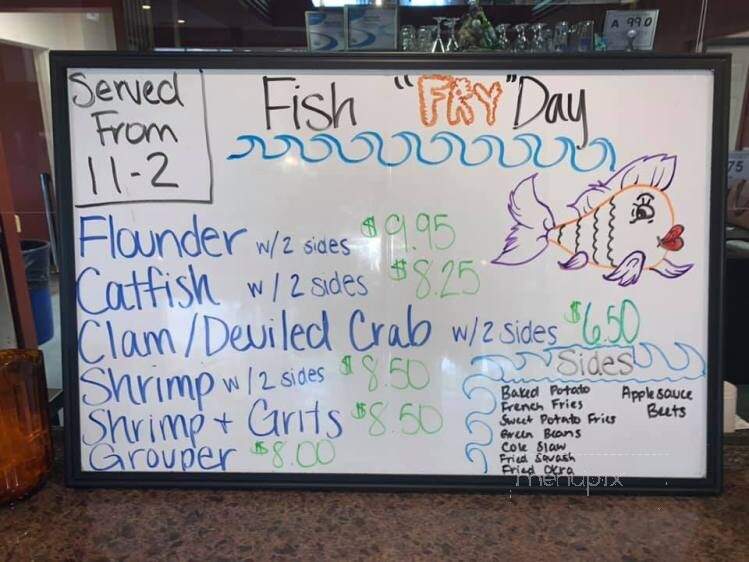 A 990
Served
From
11-2
Fish "FRY" Day
75
Flounder w/2 sides $9.95
Catfish w/2 sides $8.25
Clam/Deviled Crab w/2 sides $6.50
Shrimp w/2 sides $8.50
Shrimp + Grits $8.50
Grouper $8.00
Sides
Baked Potato
French Fries
Sweet Potato Fries
Green Beans
Cole Slaw
Fried Squash
Fried Okra
Applesauce
Beets
menupix